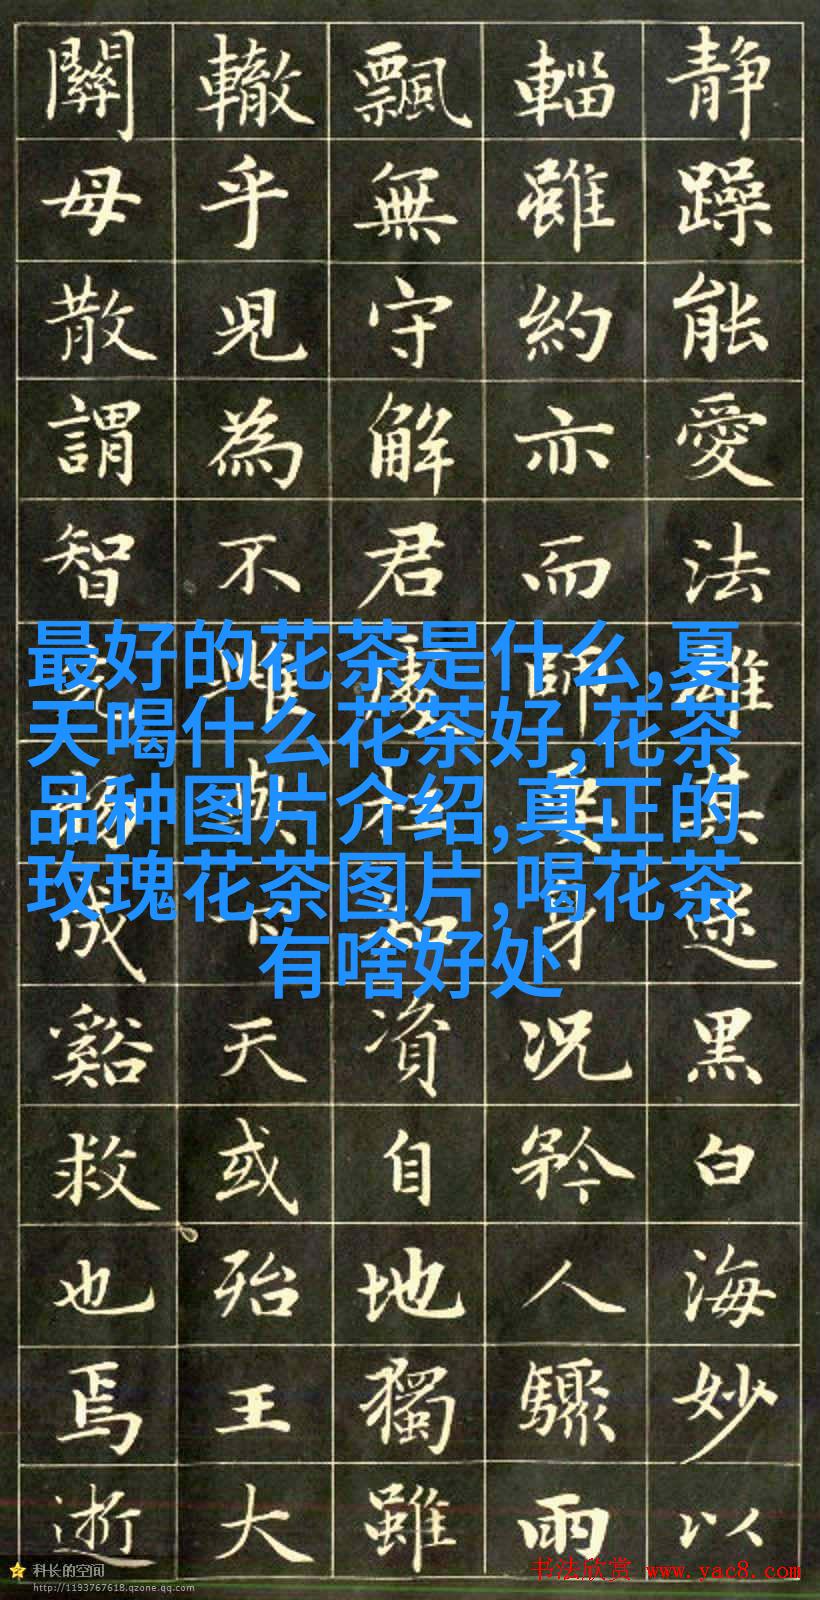 靜躁能愛法黑白海妙以
輜雖約亦而師身況矜人驟雨
飄無守解君處知資自地獨雖
轍乎児為不雌天或殆王大
關母散謂智成谿救也焉逝
最好的花茶是什么,夏
天喝什么花茶好,花茶
品种图片介绍,真正的
玫瑰花茶图片,喝花茶
有啥好处
科长的空间
http://1193767618.qzone.qq.com
书法欣赏 www.yac8.com